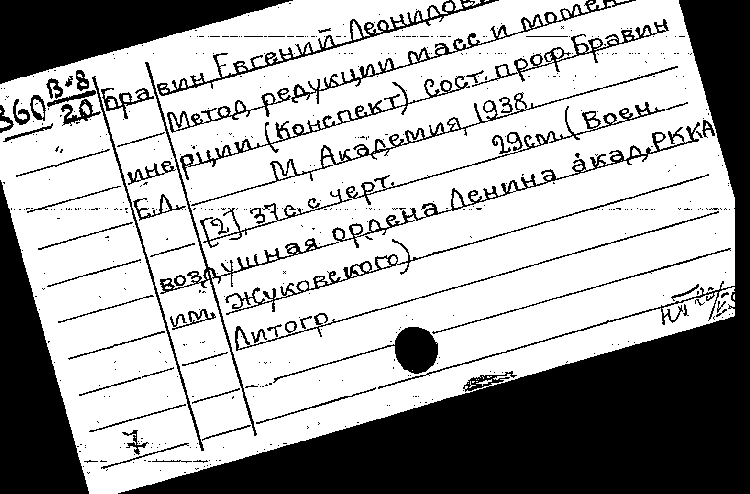 В-8
360 20
Бравин, Евгений Леонидов
Метод редукции масс и момен
инерции. (Конспект). Сост. проф. Бравин
Е.Л. М., Академия, 1938.
[2], 37с. с черт. 29см. (Воен.
воздушная ордена Ленина акад. РККА
им. Жуковского).
Литогр.